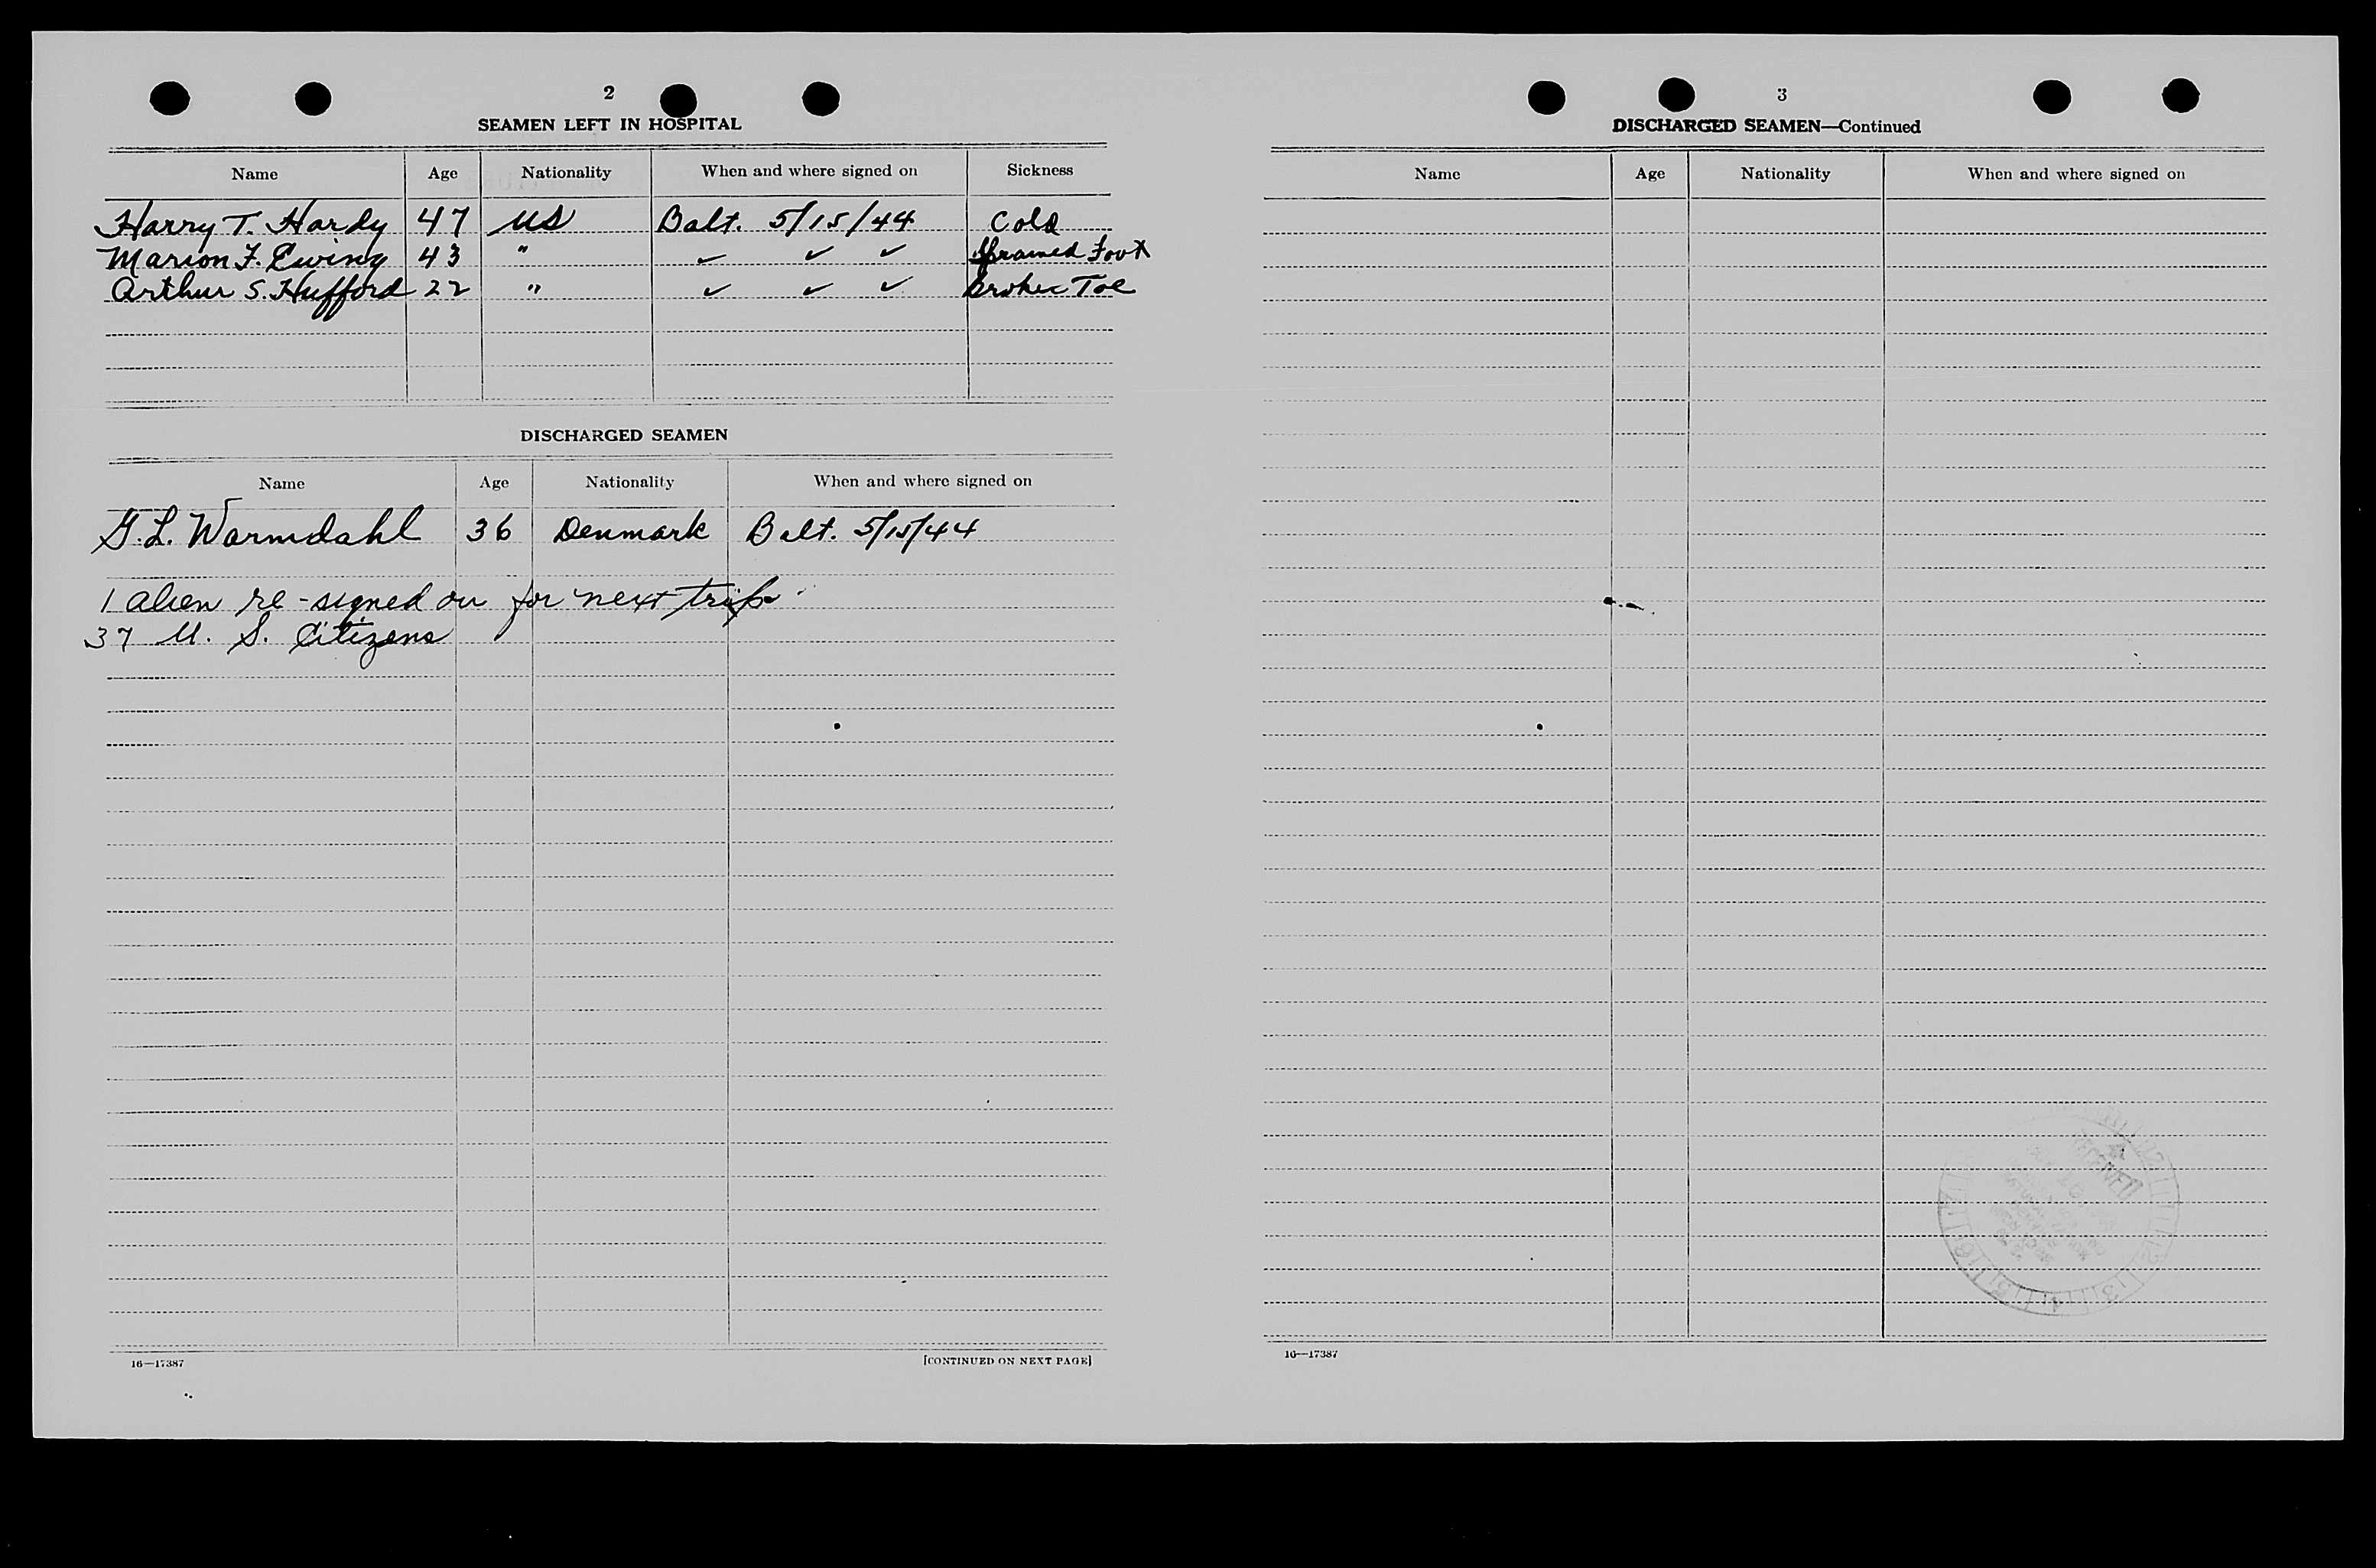 2
SEAMEN LEFT IN HOSPITAL
Name Age Nationality When and where signed on Sickness
Harry T. Hardy 47 US Balt. 5/15/44 Cold
Marion F. Ewing 43 " ✓ ✓ ✓ Sprained Foot
Arthur S. Hufford 22 " ✓ ✓ ✓ Broken Toe
DISCHARGED SEAMEN
Name Age Nationality When and where signed on
G.L. Warmdahl 36 Denmark Balt. 5/15/44
1 alien re-signed on for next trip
37 U. S. Citizens
16—17387 [CONTINUED ON NEXT PAGE]
3
DISCHARGED SEAMEN—Continued
Name Age Nationality When and where signed on
RECEIVED
16—17387